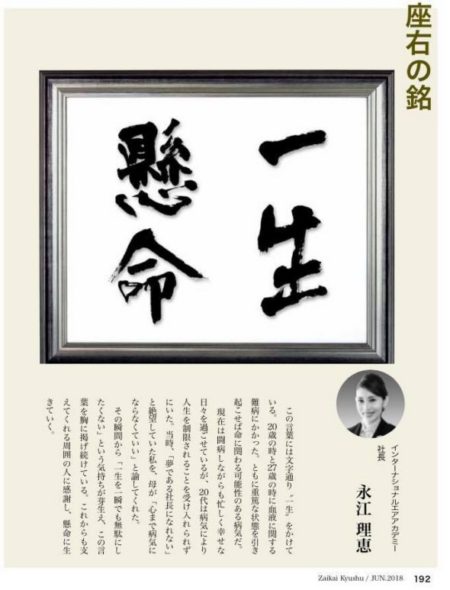 座右の銘
一生
懸命
インターナショナルエアアカデミー
社長
永江 理恵
この言葉には文字通り、“一生”をかけて
いる。20歳の時と27歳の時に血液に関する
難病にかかった。ともに重篤な状態を引き
起こせば命に関わる可能性のある病気だ。
現在は闘病しながらも忙しく幸せな
日々を過ごせているが、20代は病気により
人生を制限されることを受け入れられず
にいた。当時、「夢である社長になれない」
と絶望していた私を、母が「心まで病気に
ならなくていい」と諭してくれた。
その瞬間から「一生を一瞬でも無駄にし
たくない」という気持ちが芽生え、この言
葉を胸に掲げ続けている。これからも支
えてくれる周囲の人に感謝し、懸命に生
きていく。
Zaikai Kyushu / JUN.2018 192